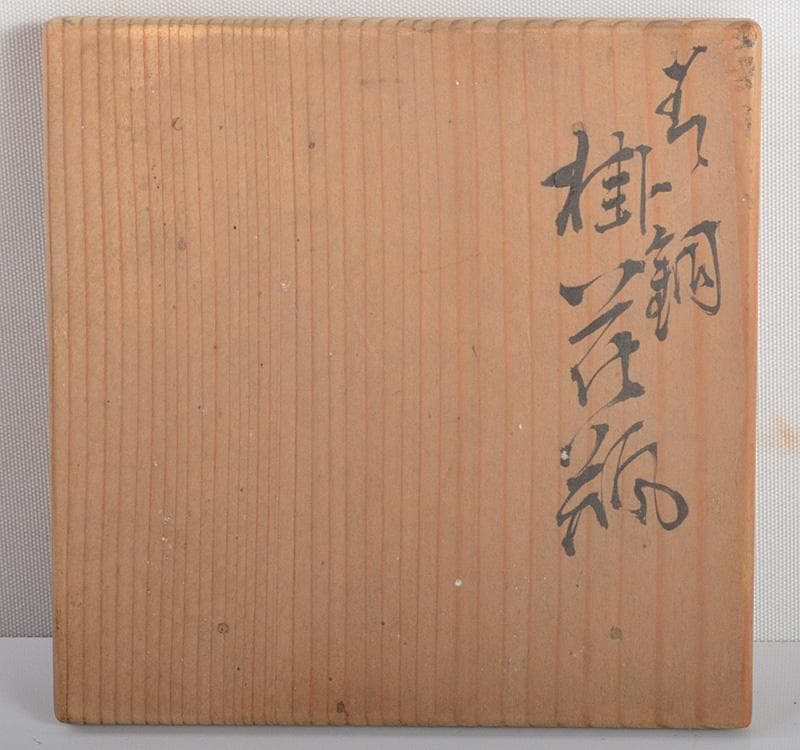 青銅
掛花瓶